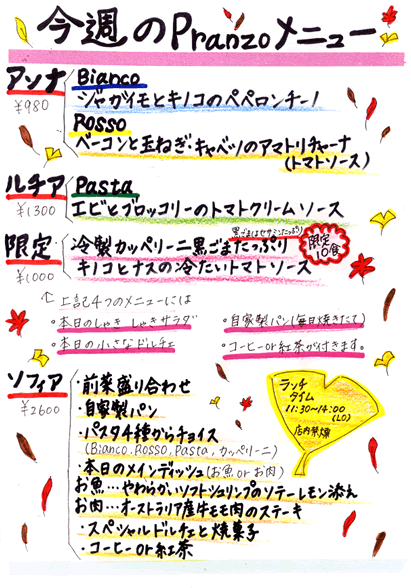 今週のPranzoメニュー
アンナ
¥980
Bianco
ジャガイモとキノコのペペロンチーノ
Rosso
ベーコンと玉ねぎ・キャベツのアマトリチャーナ
(トマトソース)
ルチア
¥1300
Pasta
エビとブロッコリーのトマトクリームソース
限定
¥1000
黒ごまはセサミンたっぷり
冷製カッペリーニ黒ごまたっぷり
キノコとナスの冷たいトマトソース
限定
10食
↑上記4つのメニューには
・本日のしゃきしゃきサラダ
・自家製パン(毎日焼きたて)
・本日の小さなドルチェ
・コーヒーor紅茶が付きます。
ソフィア
¥2600
・前菜盛り合わせ
・自家製パン
・パスタ4種からチョイス
(Bianco.Rosso.Pasta.カッペリーニ)
・本日のメインディッシュ(お魚orお肉)
お魚…やわらかいソフトシュリンプのソテーレモン添え
お肉…オーストラリア産牛モモ肉のステーキ
・スペシャルドルチェと焼菓子
・コーヒーor紅茶
ランチ
タイム
11:30〜14:00
(LO)
店内禁煙